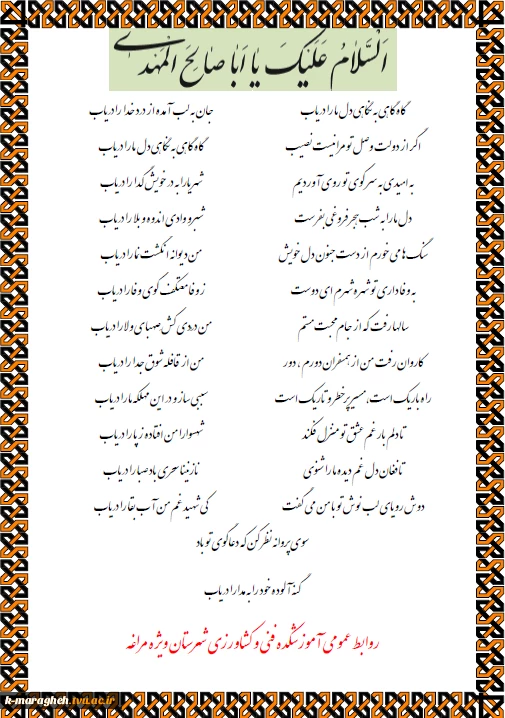 السَّلامُ عَلَیْکَ یا اَبا صالِحَ المَهْدی
گاه گاهی به نگاهی دل ما را دریاب جان به لب آمده از درد خدا را دریاب
اگر از دولت وصل تو مرا نیست نصیب گاه گاهی به نگاهی دل ما را دریاب
به امیدی به سر کوی تو روی آوردیم شهریارا به در خویش گدا را دریاب
دل ما را به شب هجر فروغی بفرست شبرو وادی اندوه و بلا را دریاب
سنگ ها می خورم از دست جنون دل خویش من دیوانه انگشت نما را دریاب
به وفاداری تو شهره شهرم ای دوست ز وفا معتکف کوی وفا را دریاب
سالها رفت که از جام محبت مستم من دردی کش صهبای ولا را دریاب
کاروان رفت من از همسفران دورم ، دور من از قافله شوق جدا را دریاب
راه باریک است، مسیر پر خطر و تاریک است سببی ساز و در این مهلکه ما را دریاب
تا دلم بار غم عشق تو منزل فکند شهسوارا من افتاده ز پا را دریاب
تا فغان دل غم دیده ما را شنوی نازنینا سحری باد صبا را دریاب
دوش رویای لب نوش تو با من می گفت کی شهید غم من آب بقا را دریاب
سوی پروانه نظر کن که دعاگوی تو باد
گنه آلوده خود را به مدارا دریاب
روابط عمومی آموزشکده فنی و کشاورزی شهرستان ویژه مراغه
k-maragheh.tvu.ac.ir